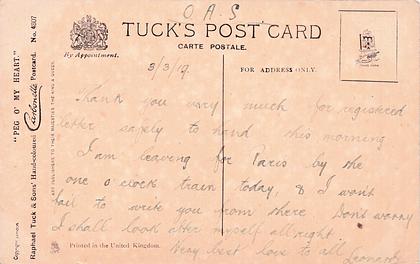 O A S
TUCK'S POST CARD
CARTE POSTALE.
By Appointment.
3/3/19.
FOR ADDRESS ONLY.
Thank you very much for registered
letter safely to hand this morning
I am leaving for Paris by the
one o'clock train today, & I won't
fail to write you from there Don't worry
I shall look after myself allright
Very best love to all Leonard
Printed in the United Kingdom.
"PEG O' MY HEART."
Raphael Tuck & Sons' Hand-coloured Carbonette Postcard. No. 4807
ART PUBLISHERS TO THEIR MAJESTIES THE KING & QUEEN.